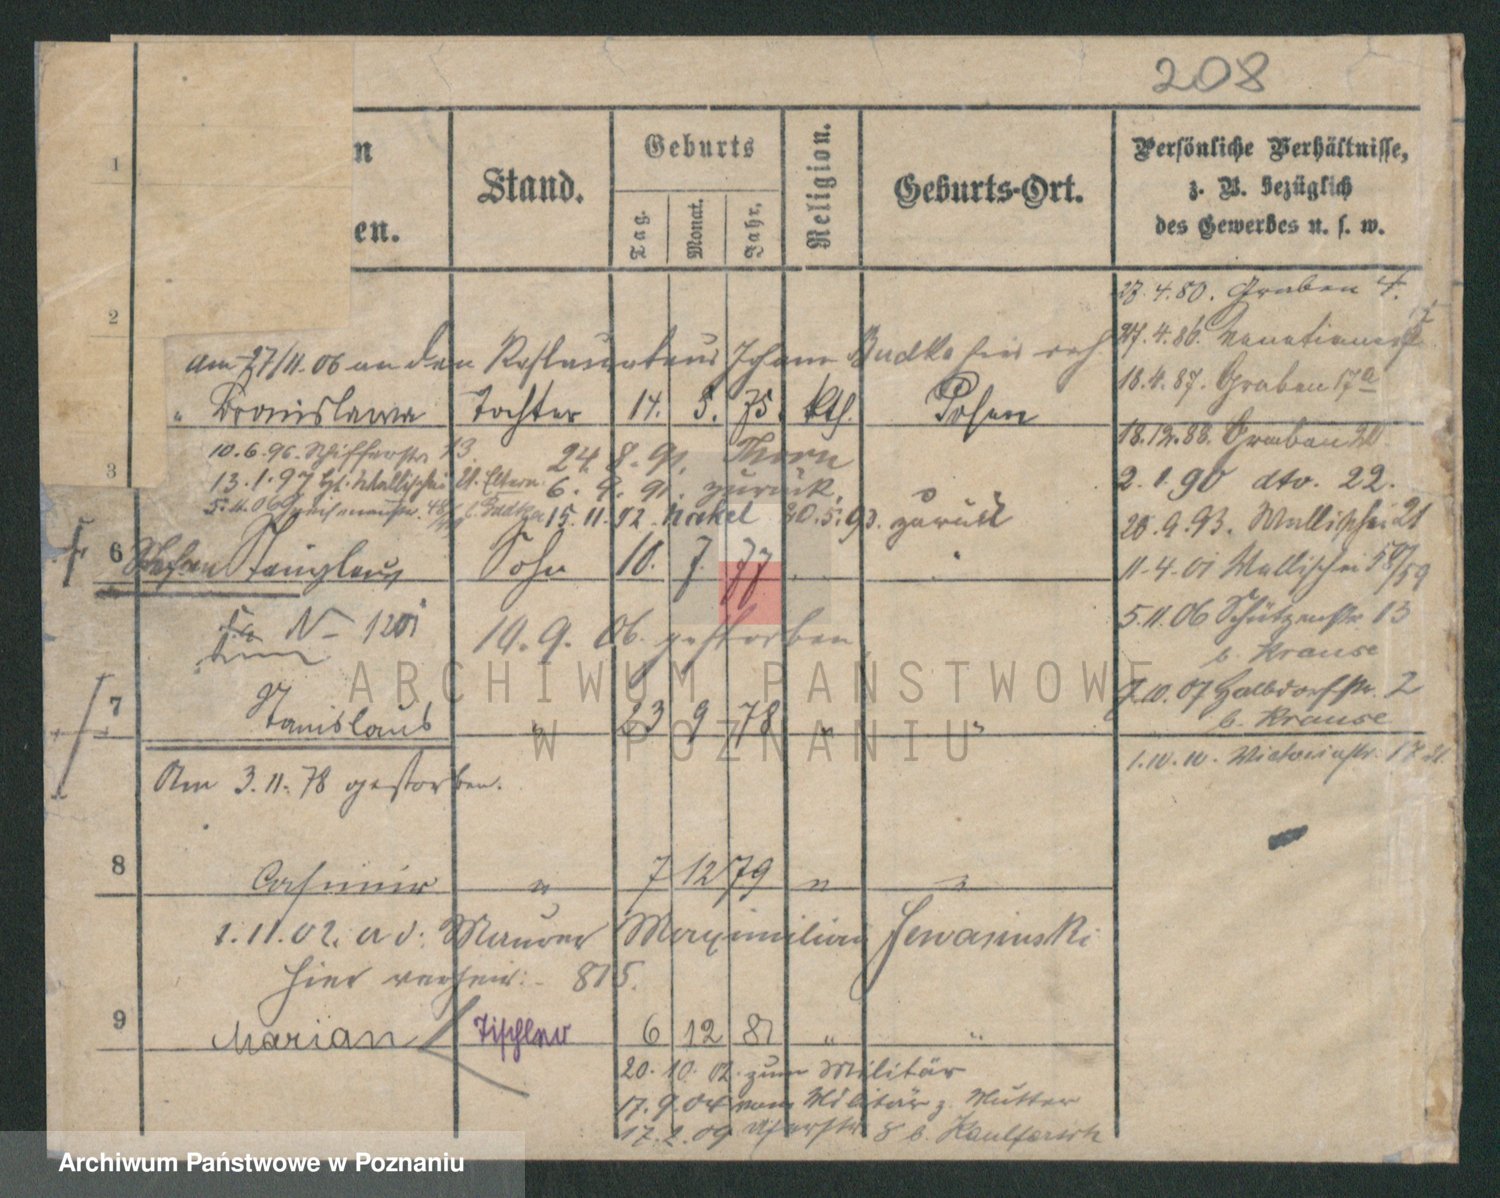 208
n
en.
Stand.
Geburts
Tag.
Monat.
Jahr.
Religion.
Geburts-Ort.
Persönliche Verhältnisse,
z. B. bezüglich
des Gewerbes u. s. w.
1
2
3
27.4.80. Graben 4.
27.4.86.
18.4.87. Graben 17a
18.12.88. Graben 20
2.1.90 dto. 22.
25.9.93. Wallischei 21
11.4.01 Wallischei 58/59
5.11.06 Schützenstr. 13
b. Krause
7.10.07 Halbdorfstr. 2
b. Krause
1.10.10. Victoriastr.
Am 27/11.06 an den Restaurateur Johann Budka hier
" Bronislawa Tochter 14. 5. 75. kth. Posen
10.6.96. Schifferstr. 13.
24.8.91. Thorn
13.1.97 Wallischei 21. Eltern.
6.9.91. zurück.
5.11.06 b. Budka
15.11.92. Nakel 30.5.93. zurück
6 Stefan Stanislaus Sohn 10. 7. 77 " "
N 1201
10.9.06. gestorben
7 Stanislaus " 23 9 78 " "
Am 3.11.78 gestorben.
8 Casimir " 7 12 79 " "
1.11.02. a d. Maurer Maximilian
hier verheir: - 815.
9 Marian Tischler 6 12 81 " "
20.10.02. zum Militär
17.9.04 vom Militär z. Mutter
17.2.09 8 b.
ARCHIWUM PAŃSTWOWE
W POZNANIU
Archiwum Państwowe w Poznaniu